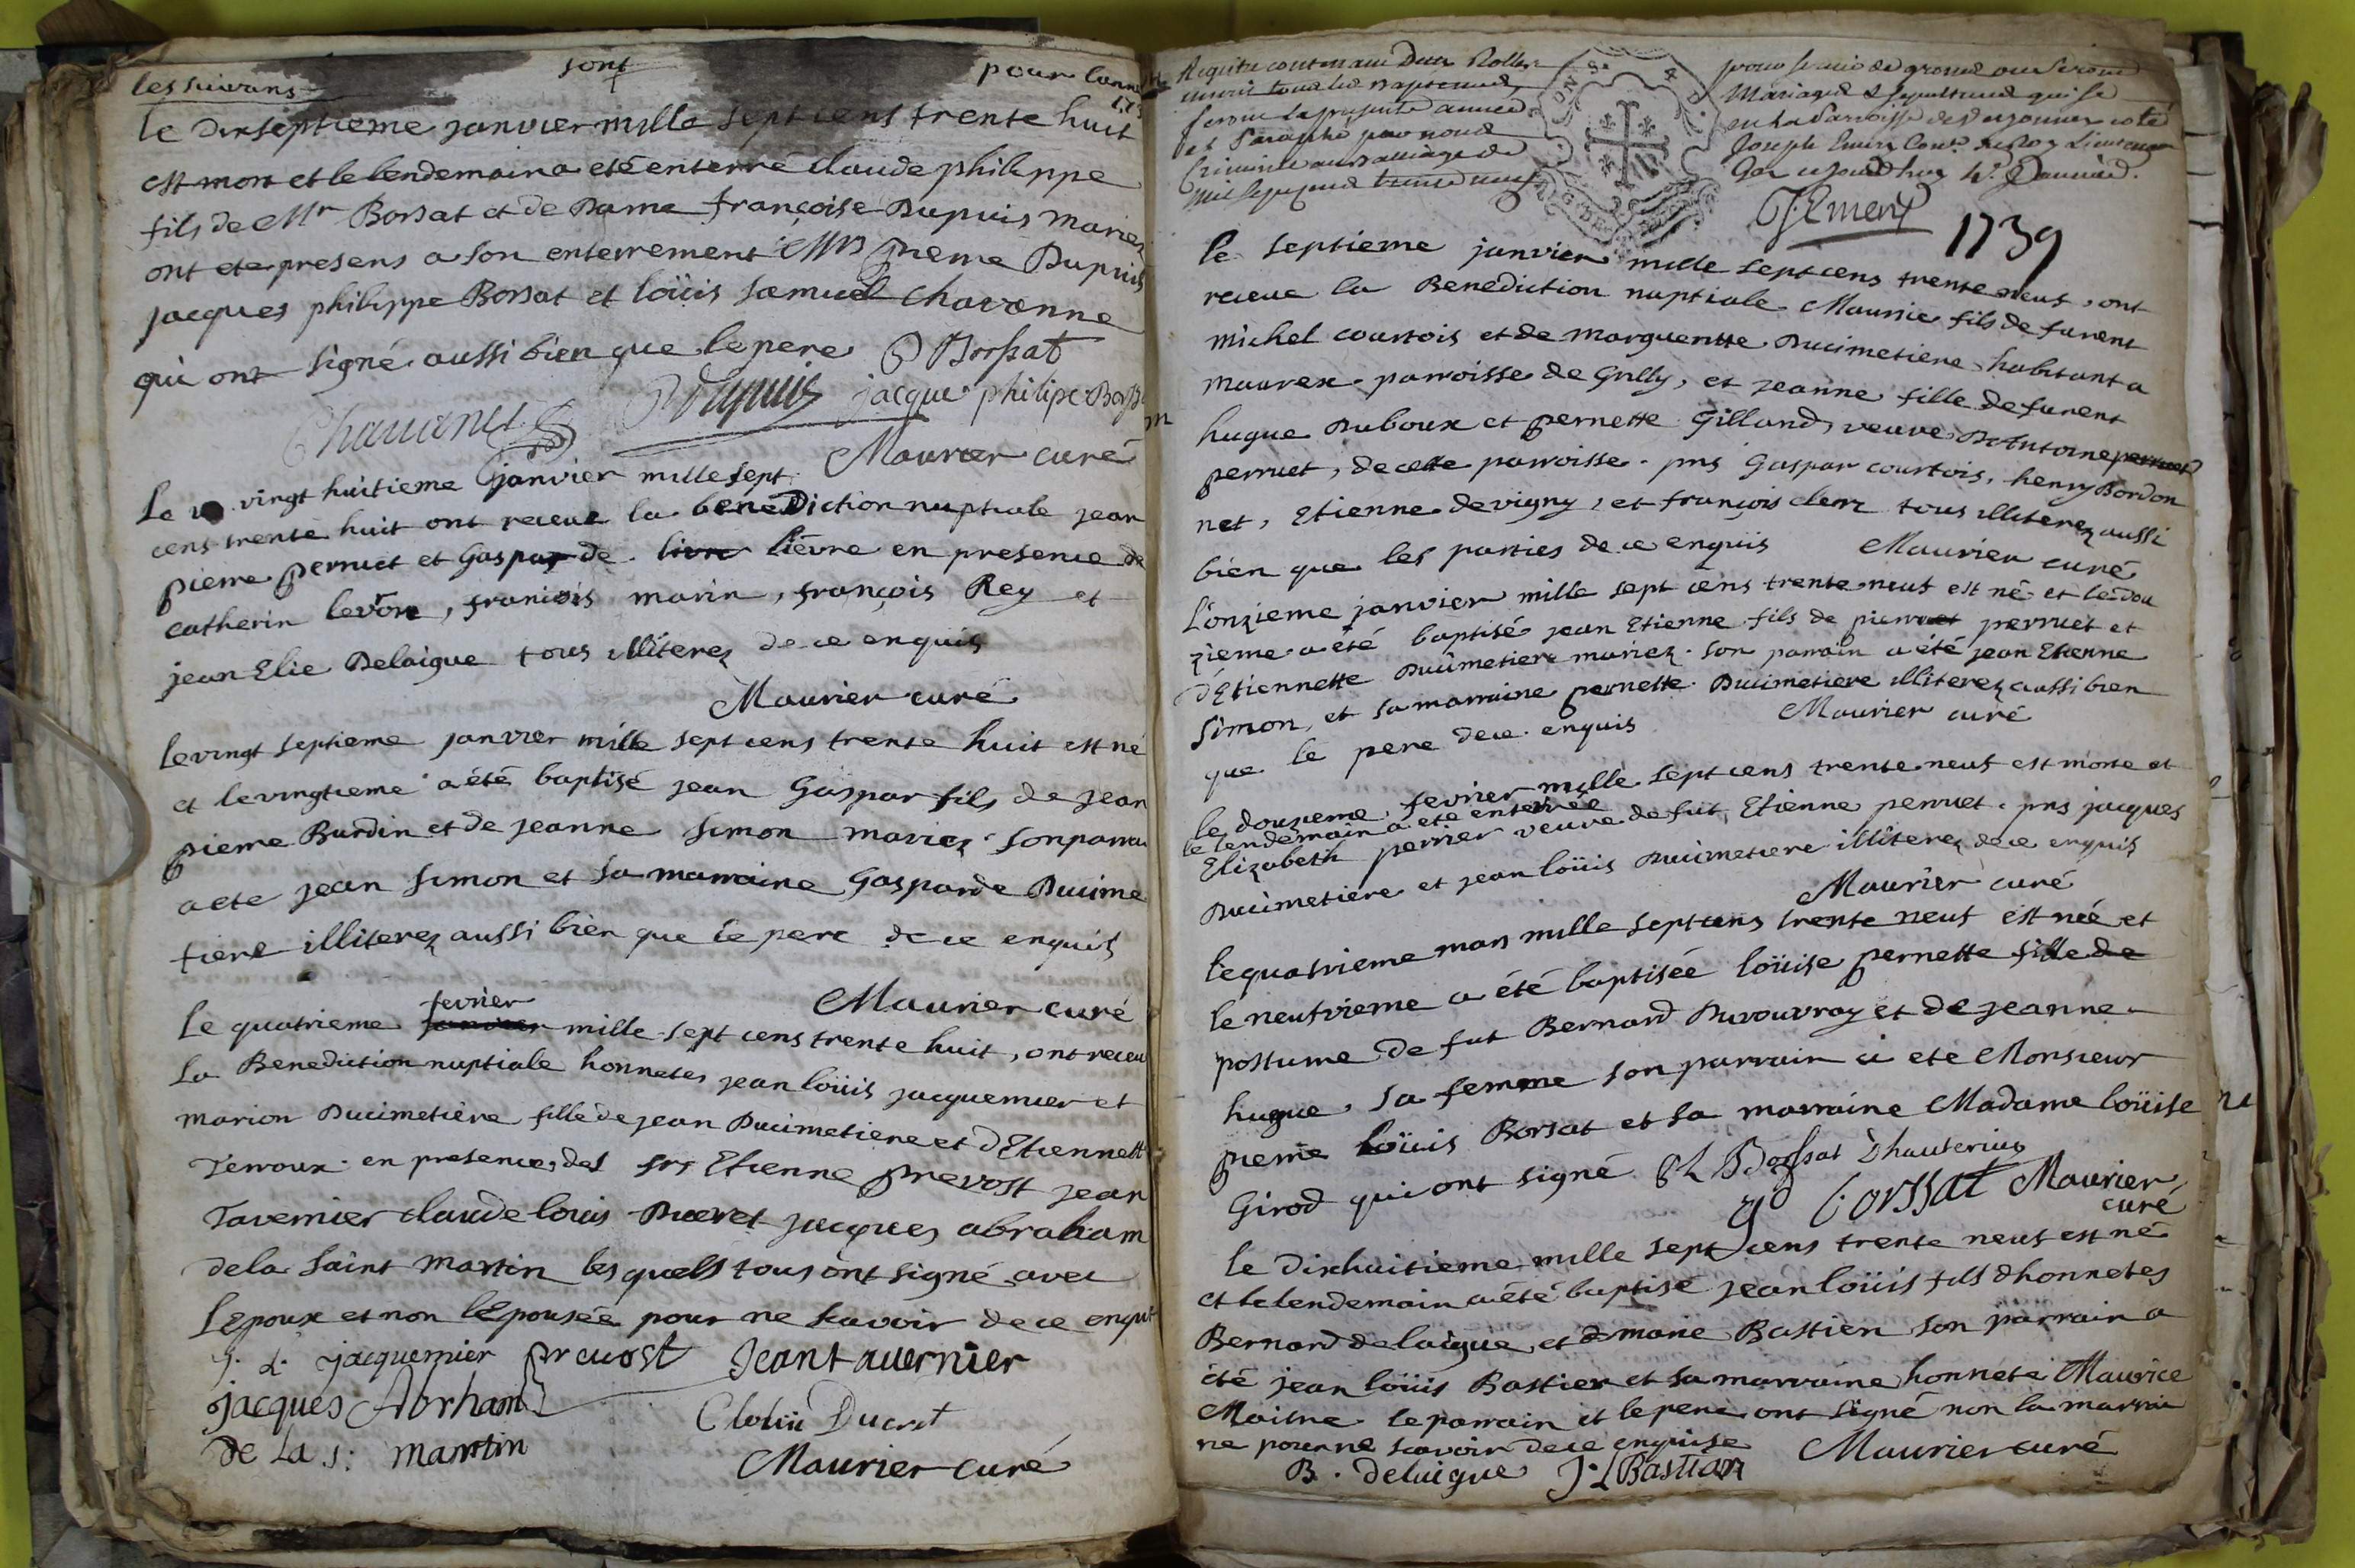 les suivans sont pour l'anne
le dixseptieme janvier mille sept cens trente huit
est mort et le lendemain a eté enterré claude philippe
fils de Mr Borsat et de Dame françoise Dupuis mariez
ont ete presens a son enterrement Mrs pierre Dupuis
jacques philippe Borsat et loüis samuel chavanne
qui ont signé aussi bien que le pere P Borssat
Chavanne Dupuis jacque philipe Bors
Maurier curé
Le vingt huitieme janvier mille sept
cens trente huit ont receue la benediction nuptiale jean
pierre perruet et Gasparde livre lièvre en presence de
catherin levõre, francois marin, françois Rey et
jean Elie Delaigue tous illiterez de ce enquis
Maurier curé
le vingt septieme janvier mille sept cens trente huit est né
et le vingtieme a été baptisé jean Gaspar fils de jean
pierre Burdin et de jeanne simon mariez son parra
a ete jean simon et sa marraine Gasparde Ducime
tiere illiterez aussi bien que le pere de ce enquis
Maurier curé
fevrier
Le quatrieme janvier mille sept cens trente huit, ont receu
La Benediction nuptiale honnetes jean loüis jacquemier et
marion Ducimetière fille de jean Ducimetiere et d'Etiennett
Terroux en presence des srs Etienne prevost jean
Tavernier claude louis Ducret jacques abraham
de la saint martin les quells tous ont signé avec
l'Epoux et non l'Epousée pour ne scavoir de ce enqui
J. L. jacquemier prevost Jean tavernier
jacques Abrham
Cloüi Ducret
de La s: martin
Maurier curé
Registre contenant deux Rolles pour servir de grosse ou seront
inscrit tous les Baptemes, Mariages & sepultures qui se
feront la presente année en la Paroisse de coté
et Paraphé par nous Joseph Emery Conr du Roy Lieutenan
Criminel au Balliage de Gex ce jourdhuy Janvier.
mil sept cent trente neuf
J. Emery
1739
le septieme janvier mille sept cens trente neuf, ont
receue la Benediction nuptiale Maurice fils de furent
michel courtois et de marguerite Ducimetiere habitant a
mourex parroisse de Grilly, et jeanne fille de furent
hugue Duboux et pernette Gilland, veuve D'Antoine perruet
perruet, de cette parroisse. pns Gaspar courtois, henry Bordon
net, Etienne devigny, et françois clerc tous illiterez aussi
bien que les parties de ce enquis Maurier curé
L'onzieme janvier mille sept cens trente neuf est né et le dou
zieme a été baptisé jean Etienne fils de pierre perruet et
d'Etiennette Ducimetiere mariez. son parrain a été jean Etienne
simon, et sa marraine pernette Ducimetiere illiterez aussi bien
que le pere de ce enquis Maurier curé
le douzieme fevrier mille sept cens trente neuf est morte et
le lendemain a eté enterrée
Elizabeth perrier veuve de fut Etienne perruet. pns jacques
Ducimetiere et jean loüis Ducimetiere illiterez de ce enquis
Maurier curé
le quatrieme mars mille sept cens trente neuf est née et
le neufvieme a été baptisée loüise pernette fille de
postume de fut Bernard Duvouvray et de jeanne
hugue, sa femme son parrain a ete Monsieur
pierre loüis Borsat et sa marraine Madame loüise
Girod qui ont signé P L Borssat Dhauterive
gd borssat Maurier
curé
le dixhuitieme mille sept cens trente neuf est né
et le lendemain a été baptisé jean loüis fils d'honnetes
Bernard delaigue, et de marie Bastien son parrain a
été jean loüis Bastien et sa marraine honnete Maurice
Moisne le parrain et le pere ont signé non la marrai
ne pour ne scavoir de ce enquise Maurier curé
B. delaigue J. L Bastian